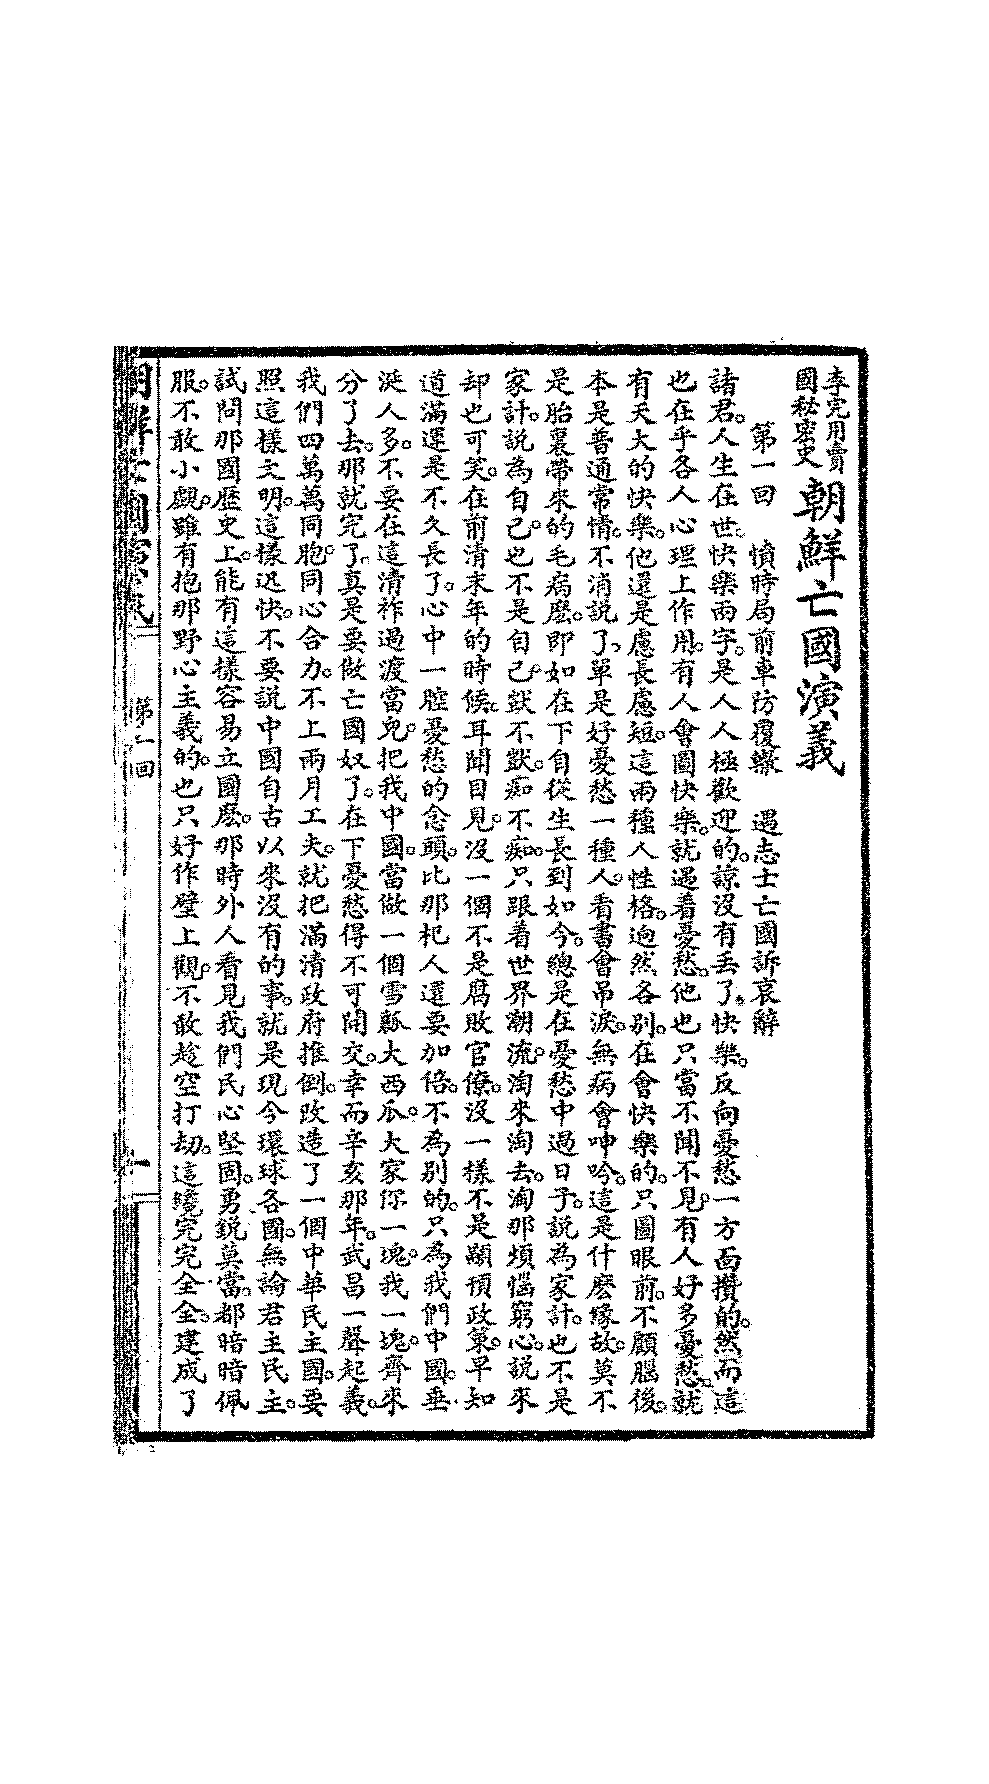 李完用賣國秘密史 朝鮮亡國演義
第一回 憤時局前車防覆轍 遇志士亡國訴哀辭
諸君。人生在世。快樂兩字。是人人極歡迎的。諒沒有丢了快樂。反向憂愁一方面攢的。然而這
也在乎各人心理上作用。有人會圖快樂。就遇着憂愁。他也只當不聞不見。有人好多憂愁。就
有天大的快樂。他還是慮長慮短。這兩種人性格。逈然各別。在會快樂的。只圖眼前。不顧腦後。
本是普通常情。不消說了。單是好憂愁一種人。看書會吊淚。無病會呻吟。這是什麽緣故。莫不
是胎裏帶來的毛病麽。即如在下自從生長到如今。總是在憂愁中過日子。說為家計。也不是
家計。說為自己。也不是自己。獃不獃。痴不痴。只跟着世界潮流。淘來淘去。淘那煩惱窮心。說來
却也可笑。在前清末年的時候。耳聞目見。沒一個不是腐敗官僚。沒一樣不是顢頇政策。早知
道滿運是不久長了。心中一腔憂愁的念頭。比那杞人還要加倍。不為別的。只為我們中國。垂
涎人多。不要在這清祚過渡當兒。把我中國。當做一個雪瓤大西瓜。大家你一塊。我一塊。齊來
分了去。那就完了。真是要做亡國奴了。在下憂愁得不可開交。幸而辛亥那年。武昌一聲起義。
我們四萬萬同胞。同心合力。不上兩月工夫。就把滿清政府推倒。改造了一個中華民主國。要
照這樣文明。這樣迅快。不要說中國自古以來沒有的事。就是現今環球各國。無論君主民主。
試問那國歷史上。能有這樣容易立國麽。那時外人看見我們民心堅固。勇銳莫當。都暗暗佩
服。不敢小覷。雖有抱那野心主義的。也只好作壁上觀。不敢趁空打劫。這纔完完全全。建成了
第一回
一